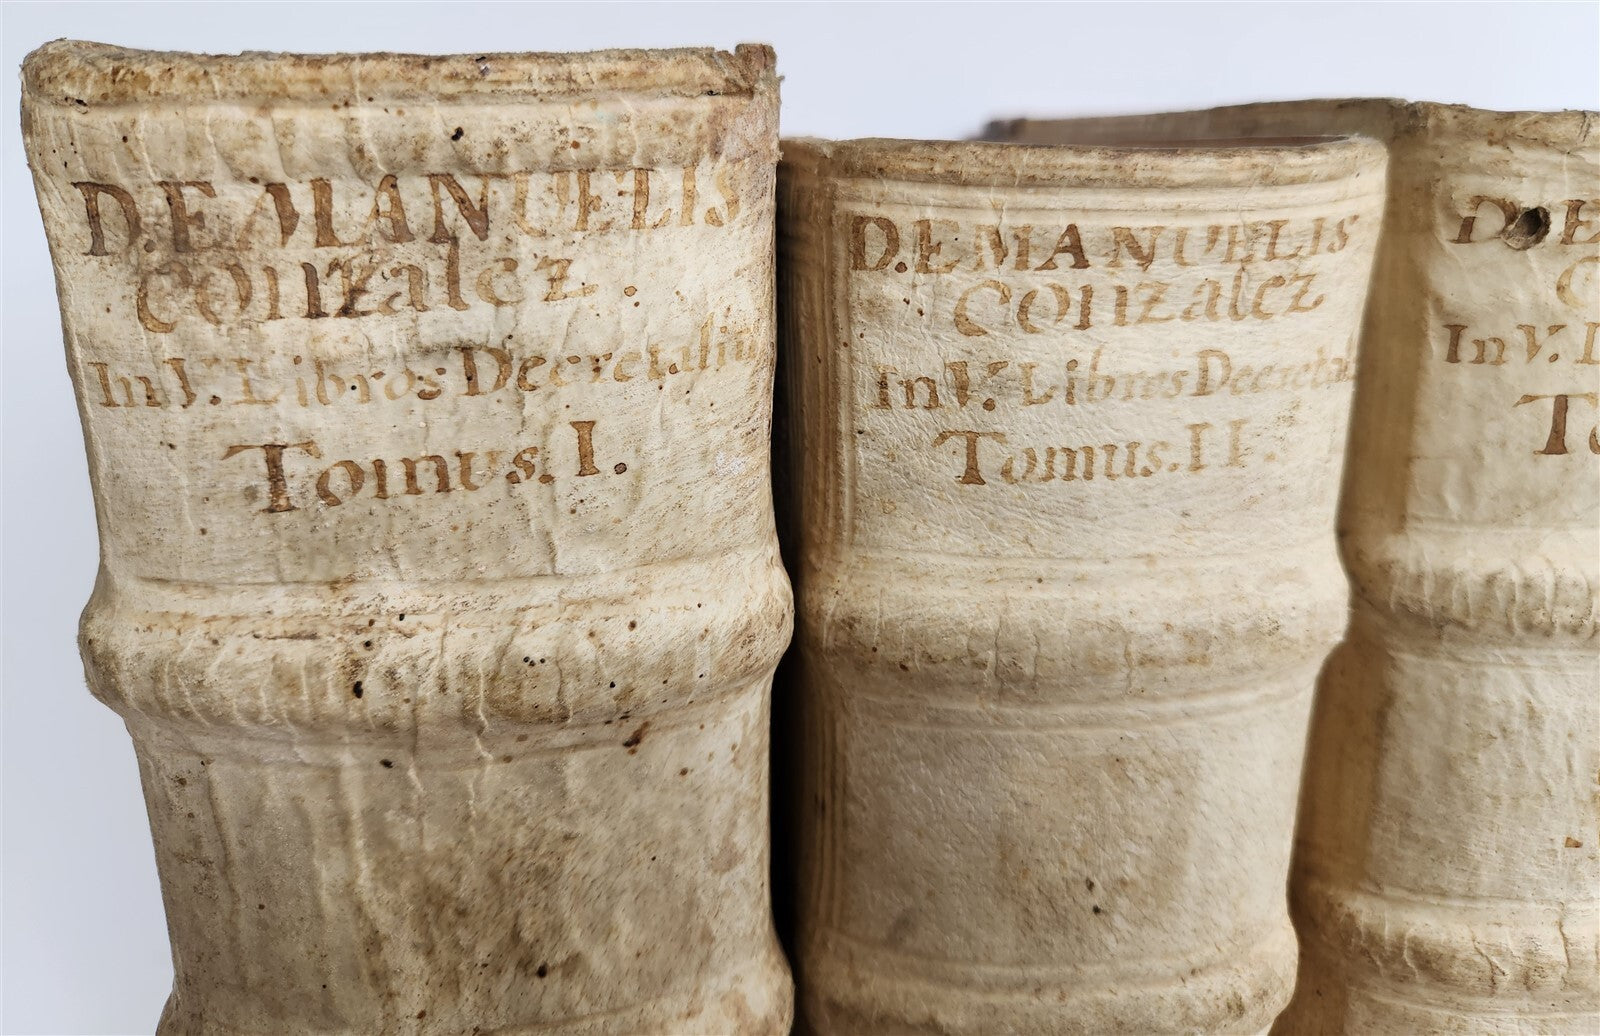 D. EMANUELIS
Gonzalez.
In V. Libros Decretaliu
Tomus. I.
D. EMANUELIS
Gonzalez
In V. Libros Decretal
Tomus. II.
D. E
In V. L
To